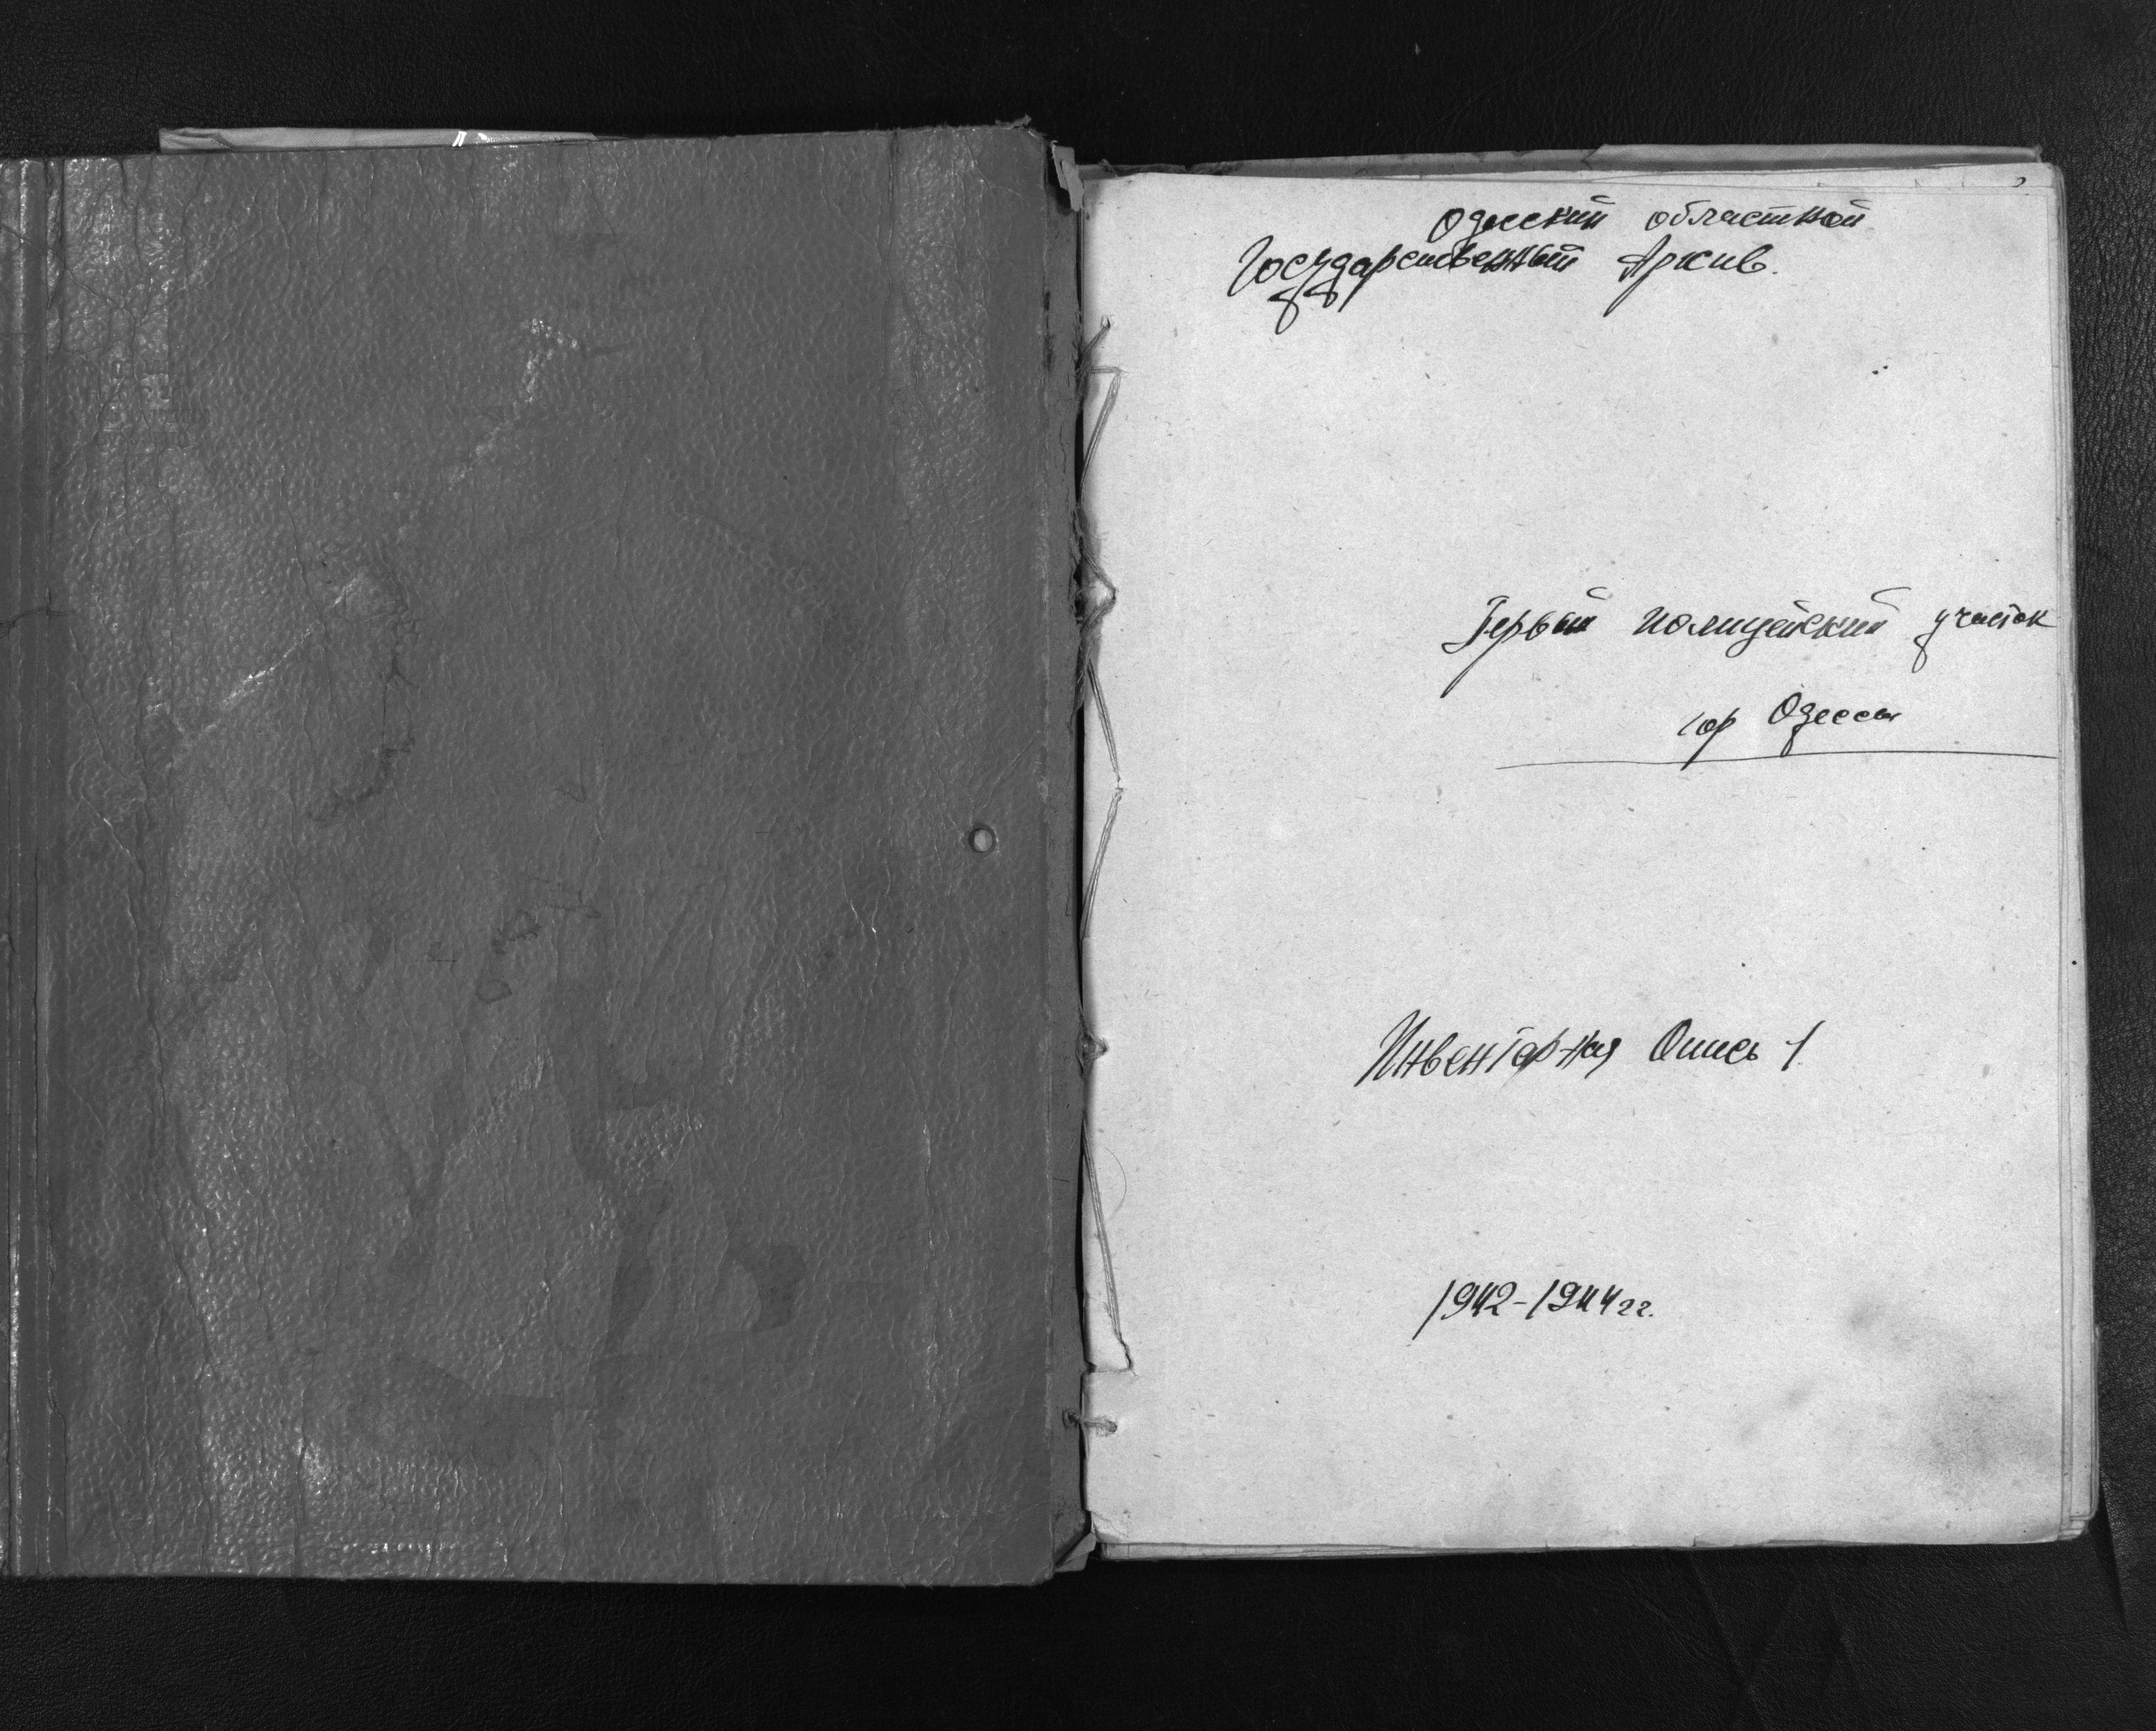 Одесский областной
Государственный Архив.
Первый полицейский участок
гор Одессы
Инвентарная Опись 1
1942-1944 гг.